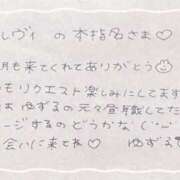 レヴィ の本指名さま♡
月も来てくれてありがとう
もリクエスト楽しみにしてます
は ゆずるの元々昼職してた
ージするのどうかな(
会いに来てね♡ ゆずる♡